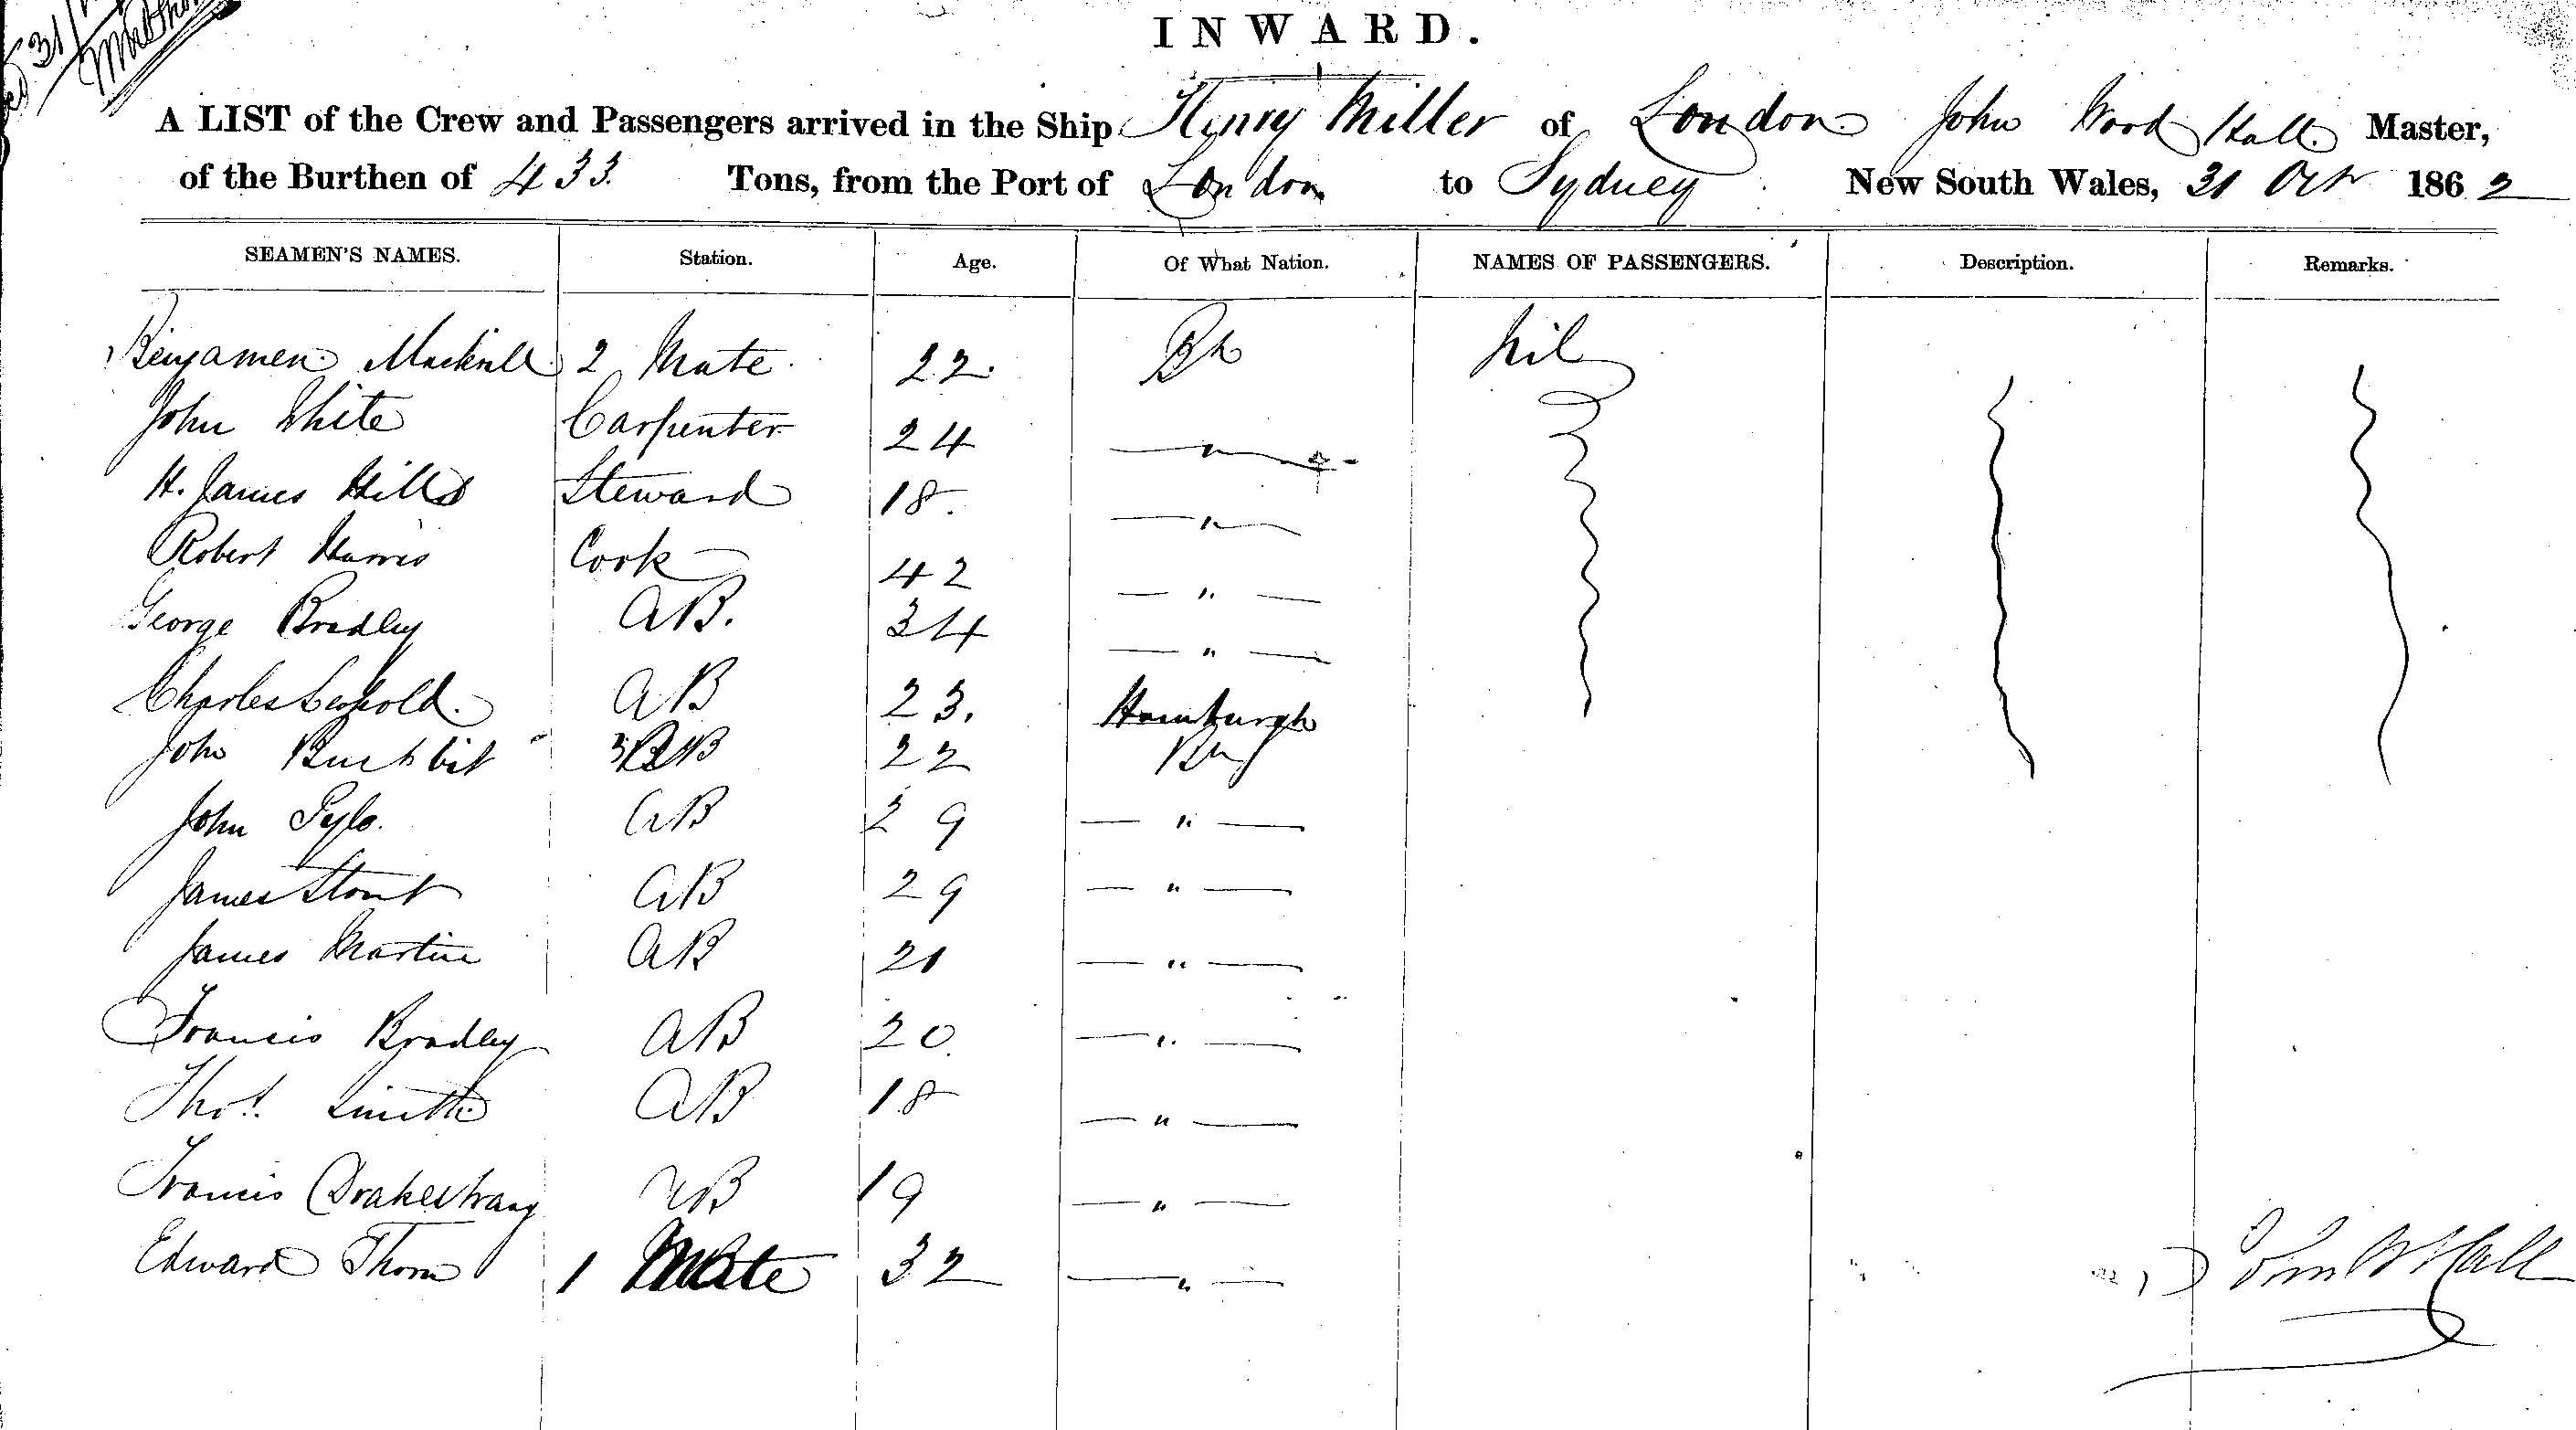 31/
INWARD.
A LIST of the Crew and Passengers arrived in the Ship Henry Miller of London John Wood Hall Master,
of the Burthen of 433 Tons, from the Port of London to Sydney New South Wales, 31 Oct 1862
SEAMEN'S NAMES. Station. Age. Of What Nation. NAMES OF PASSENGERS. Description. Remarks.
Benjamen 2 Mate 22 Nil
John White Carpenter 24 — " —
H. James Hills Steward 18 — " —
Robert Harris Cook 42 — " —
George Bradley AB. 34 — " —
Charles AB 23. Hamburgh
John 22
John AB 29 — " —
James Stout AB 29 — " —
James Martin AB 21 — " —
Francis Bradley AB 20 — " —
Thos. Smith AB 18 — " —
Francis AB 19 — " —
Edward Thorn 1 Mate 32 — " —
John W Hall